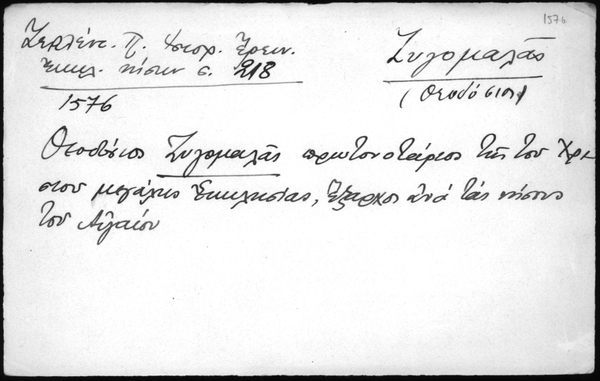 1576
Ζερλέντ. Π. Ἱστορ. Ἔρευν.
Ἐκκλ. νήσων σ. 218
Ζυγομαλᾶς
(Θεοδόσιος)
1576
Θεοδόσιος Ζυγομαλᾶς πρωτονοτάριος τῆς τοῦ Χρι
στοῦ μεγάλης Ἐκκλησίας, Ἔξαρχος ἀνά τάς νήσους
τοῦ Αἰγαίου